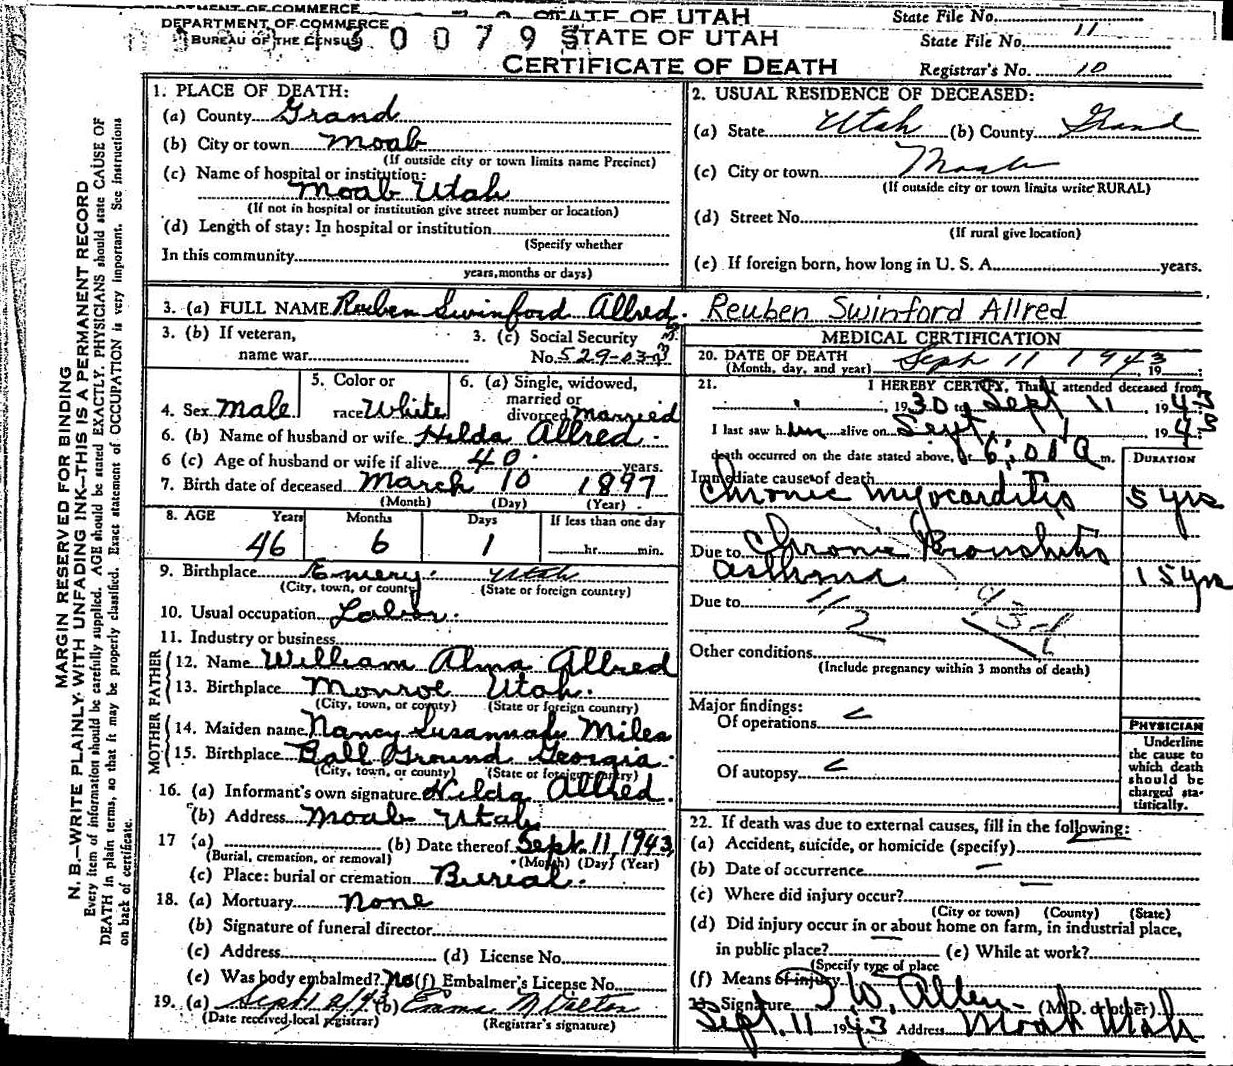 DEPARTMENT OF COMMERCE
STATE OF UTAH
State File No.
DEPARTMENT OF COMMERCE
BUREAU OF THE CENSUS
0 0 7 9
STATE OF UTAH
State File No. 11
CERTIFICATE OF DEATH
Registrar's No. 10
MARGIN RESERVED FOR BINDING
N. B.—WRITE PLAINLY, WITH UNFADING INK—THIS IS A PERMANENT RECORD
Every item of information should be carefully supplied. AGE should be stated EXACTLY. PHYSICIANS should state CAUSE OF
DEATH in plain terms, so that it may be properly classified. Exact statement of OCCUPATION is very important. See instructions
on back of certificate.
1. PLACE OF DEATH:
(a) County Grand
(b) City or town Moab
(If outside city or town limits name Precinct)
(c) Name of hospital or institution:
Moab Utah
(If not in hospital or institution give street number or location)
(d) Length of stay: In hospital or institution
(Specify whether
In this community
years, months or days)
2. USUAL RESIDENCE OF DECEASED:
(a) State Utah (b) County Grand
(c) City or town Moab
(If outside city or town limits write RURAL)
(d) Street No.
(If rural give location)
(e) If foreign born, how long in U. S. A. years.
3. (a) FULL NAME Reuben Swinford Allred. Reuben Swinford Allred
3. (b) If veteran,
name war
3. (c) Social Security
No. 529-03-
4. Sex Male
5. Color or
race White
6. (a) Single, widowed,
married or
divorced Married
6. (b) Name of husband or wife Hilda Allred.
6 (c) Age of husband or wife if alive 40 years.
7. Birth date of deceased March 10 1897
(Month) (Day) (Year)
8. AGE Years Months Days If less than one day
46 6 1 hr. min.
9. Birthplace Emery. Utah
(City, town, or county) (State or foreign country)
10. Usual occupation Labor.
11. Industry or business
FATHER
12. Name William Alma Allred
13. Birthplace Monroe Utah.
(City, town, or county) (State or foreign country)
MOTHER
14. Maiden name Nancy Susannah Miles
15. Birthplace Ball Ground Georgia.
(City, town, or county) (State or foreign country)
16. (a) Informant's own signature Hilda Allred.
(b) Address Moab Utah
17 (a) (b) Date thereof Sept. 11 1943
(Burial, cremation, or removal) (Month) (Day) (Year)
(c) Place: burial or cremation Burial.
18. (a) Mortuary None
(b) Signature of funeral director
(c) Address (d) License No.
(e) Was body embalmed? No (f) Embalmer's License No.
19. (a) Sept (b) Emma M
(Date received local registrar) (Registrar's signature)
MEDICAL CERTIFICATION
20. DATE OF DEATH
(Month, day, and year) Sept 11 1943, 19
21. I HEREBY CERTIFY, That I attended deceased from
, 1930 to Sept 11 1943
I last saw him alive on Sept 1943
death occurred on the date stated above, at 6:01 a m.
DURATION
Immediate cause of death
Chronic myocarditis 5 yrs
Due to Chronic Bronchitis
asthma 15 yrs
Due to
1/2 93d
Other conditions
(Include pregnancy within 3 months of death)
Major findings:
Of operations
Of autopsy
PHYSICIAN
Underline
the cause to
which death
should be
charged sta-
tistically.
22. If death was due to external causes, fill in the following:
(a) Accident, suicide, or homicide (specify)
(b) Date of occurrence
(c) Where did injury occur?
(City or town) (County) (State)
(d) Did injury occur in or about home on farm, in industrial place,
in public place? (e) While at work?
(Specify type of place
(f) Means of injury
Signature Allen (M.D. or other)
Sept. 11 1943 Address Moab Utah